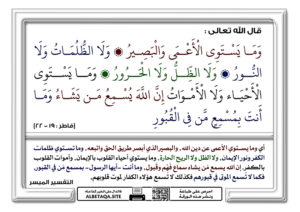 قال الله تعالى :
وَمَا يَسْتَوِى الْأَعْمَىٰ وَالْبَصِيرُ ۝ وَلَا الظُّلُمَاتُ وَلَا
النُّورُ ۝ وَلَا الظِّلُّ وَلَا الْحَرُورُ ۝ وَمَا يَسْتَوِى
الْأَحْيَاءُ وَلَا الْأَمْوَاتُ إِنَّ اللَّهَ يُسْمِعُ مَن يَشَاءُ وَمَا
أَنتَ بِمُسْمِعٍ مَّن فِى الْقُبُورِ
(فاطر : ١٩ - ٢٢)
أي وما يستوي الأعمى عن دين الله، والبصير الذي أبصر طريق الحق واتبعه، وما تستوي ظلمات
الكفر ونور الإيمان، ولا الظل ولا الريح الحارة، وما يستوي أحياء القلوب بالإيمان، وأموات القلوب
بالكفر. إن الله يسمع من يشاء سماع فهم وقبول، وما أنت -أيها الرسول- بمسمع من في القبور،
فكما لا تسمع الموتى في قبورهم فكذلك لا تسمع هؤلاء الكفار لموت قلوبهم.
التفسير الميسر
احرص على طباعة
ونشر هذه الورقة
ALBETAQA.SITE